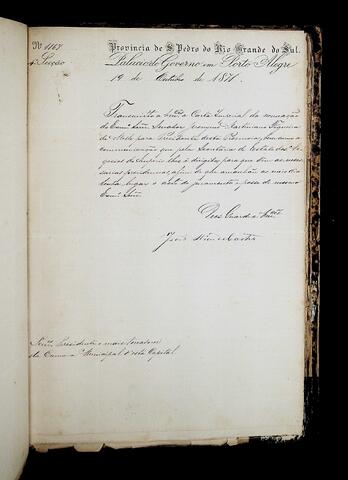 Nº 1167
Secção
Provincia de S. Pedro do Rio Grande do Sul.
Palacio do Governo em Porto Alegre
de Outubro de 1871.
Transmitto a Carta Imperial da nomeação
do Exmo. Senr. Senador Jeronymo Martiniano Figueira
de Mello para Presidente desta Provincia, bem como a
communicação que pela Secretaria de Estado dos Ne-
gocios do Imperio lhe é dirigida, para que dêm as neces-
sarias providencias, afim de que amanhãa ao meio dia
tenha lugar o acto de juramento e posse do mesmo
Exmo. Senr.
Deos Guarde a
Senres. Presidente e mais Vereadores
da Camara Municipal desta Capital